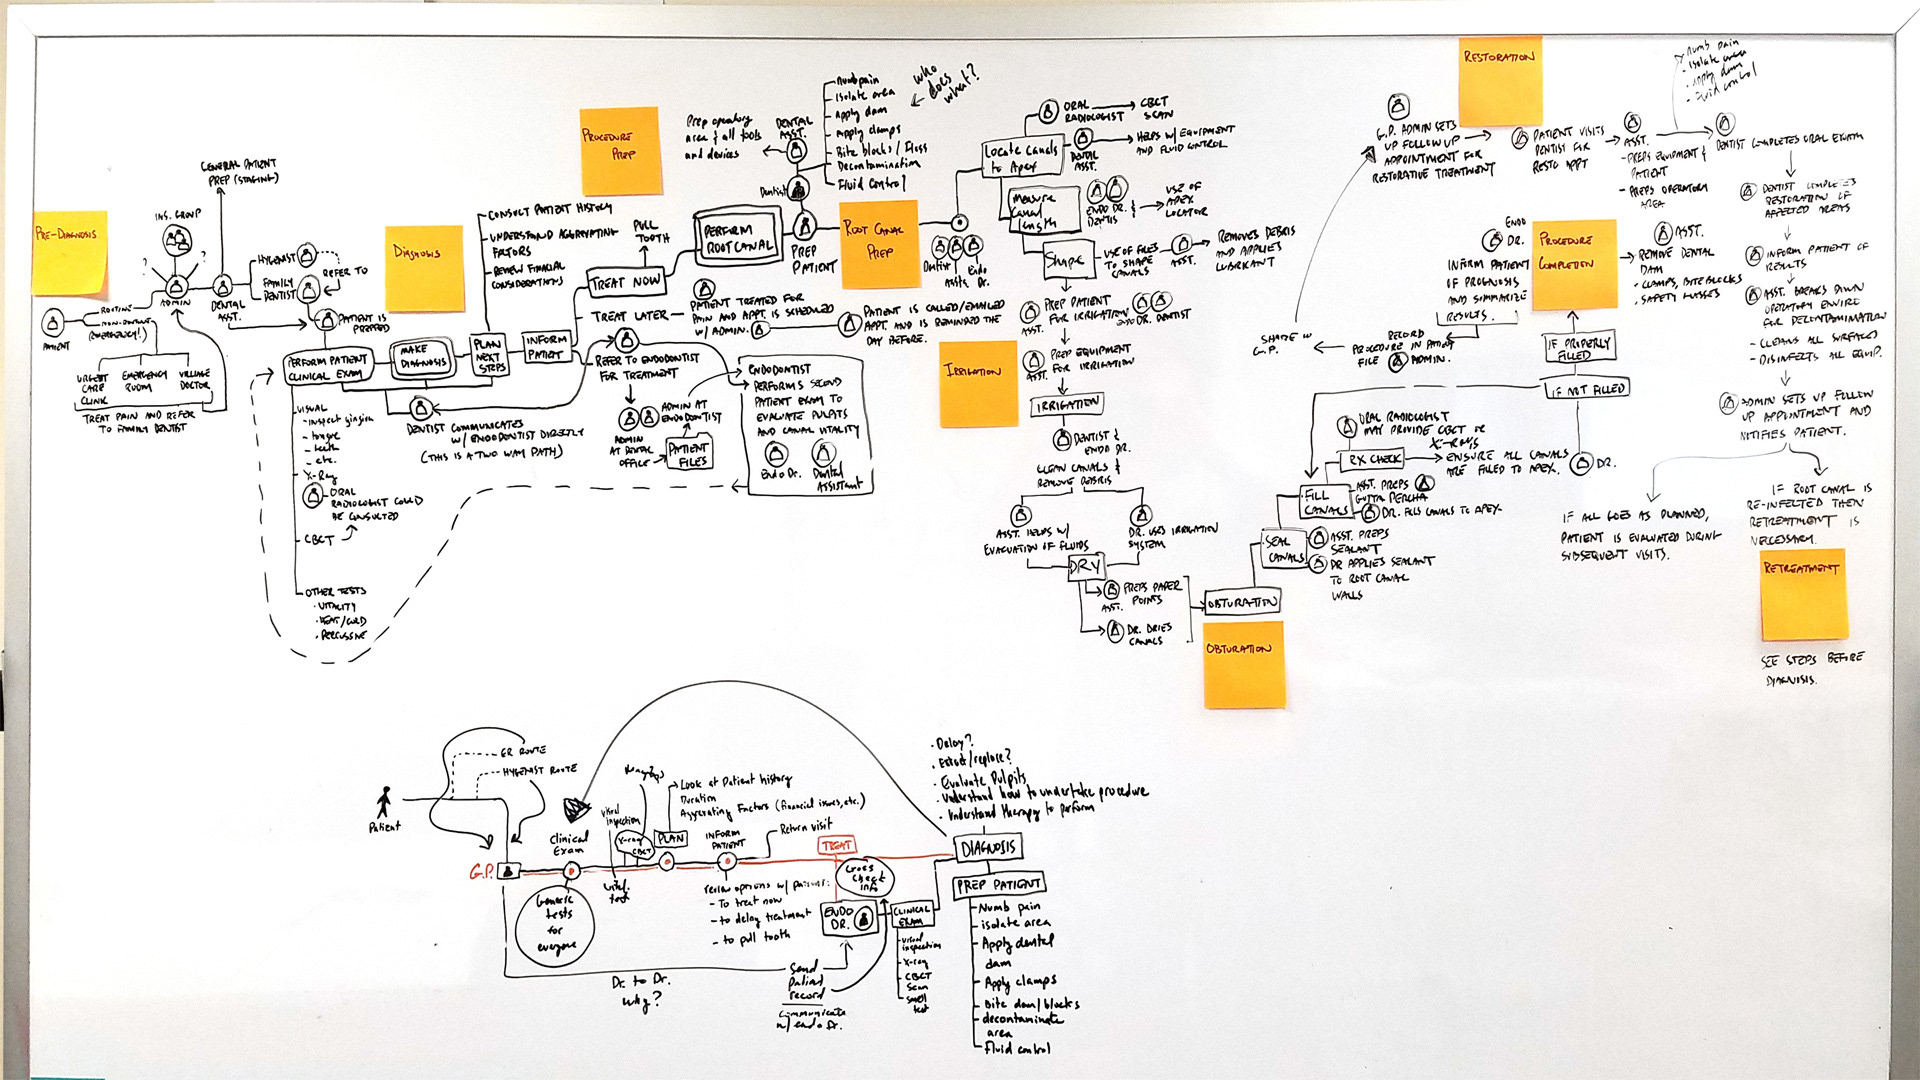 PRE-DIAGNOSIS
GENERAL PATIENT
PREP (STAGING)
INS. GROUP
?
?
ADMIN
HYGENIST
FAMILY
DENTIST
REFER TO
DENTAL
ASST.
PATIENT IS
PREPPED
PATIENT
ROUTINE
NON-ROUTINE
(EMERGENCY!)
URGENT
CARE
CLINIC
EMERGENCY
ROOM
VILLAGE
DOCTOR
TREAT PAIN AND REFER
TO FAMILY DENTIST
PERFORM PATIENT
CLINICAL EXAM
VISUAL
- inspect gingiva
- tongue
- teeth
- etc.
X-Ray
ORAL
RADIOLOGIST COULD
BE CONSULTED
CBCT
OTHER TESTS
• VITALITY
• HEAT/COLD
• PERCUSSIVE
DIAGNOSIS
MAKE
DIAGNOSIS
DENTIST COMMUNICATES
W/ ENDODONTIST DIRECTLY
(THIS IS A TWO WAY PATH)
- CONSULT PATIENT HISTORY
- UNDERSTAND AGGRAVATING
FACTORS
- REVIEW FINACIAL
CONSIDERATIONS
PLAN
NEXT
STEPS
INFORM
PATIENT
PULL
TOOTH
TREAT NOW
TREAT LATER
PATIENT TREATED FOR
PAIN AND APPT. IS SCHEDULED
W/ ADMIN.
PATIENT IS CALLED/EMAILED
APPT. AND IS REMINDED THE
DAY BEFORE.
REFER TO ENDODONTIST
FOR TREATMENT
ADMIN
AT DENTAL
OFFICE
ADMIN AT
ENDODONTIST
PATIENT
FILES
ENDODONTIST
PERFORMS SECOND
PATIENT EXAM TO
EVALUATE PULPITS
AND CANAL VITALITY
Endo Dr.
Dental
Assistant
PROCEDURE
PREP
PERFORM
ROOT CANAL
Prep operatory
area & all tools
and devices
DENTAL
ASST.
Dentist
PREP
PATIENT
- Numb pain
- Isolate area
- Apply dam
- Apply clamps
- Bite blocks / floss
- Decontamination
- Fluid Control
who
does
what?
ROOT CANAL
PREP
Dentist
Assts.
Endo
Dr.
Locate Canals
to Apex
ORAL
RADIOLOGIST
CBCT
SCAN
DENTAL
ASST.
HELPS W/ EQUIPMENT
AND FLUID CONTROL
Measure
Canal
length
ENDO DR. &
DENTIS
USE OF
APEX
LOCATOR
Shape
USE OF FILES
TO SHAPE
CANALS
ASST.
REMOVES DEBRIS
AND APPLIES
LUBRICANT
IRRIGATION
ASST.
PREP PATIENT
FOR IRRIGATION
ENDO DR. DENTIST
ASST.
PREP EQUIPMENT
FOR IRRIGATION
IRRIGATION
DENTIST &
ENDO DR.
CLEAN CANALS &
REMOVE DEBRIS
ASST. HELPS W/
EVACUATION OF FLUIDS
DR. USES IRRIGATION
SYSTEM
DRY
ASST.
PREPS PAPER
POINTS
DR. DRIES
CANALS
OBTURATION
OBTURATION
SEAL
CANALS
ASST. PREPS
SEALANT
DR APPLIES SEALANT
TO ROOT CANAL
WALLS
FILL
CANALS
ASST. PREPS
GUTTA PERCHA
DR. FILLS CANALS TO APEX
RX CHECK
ORAL RADIOLOGIST
MAY PROVIDE CBCT OR
X-RAYS
ENSURE ALL CANALS
ARE FILLED TO APEX.
DR.
IF NOT FILLED
IF PROPERLY
FILLED
PROCEDURE
COMPLETION
ASST.
REMOVE DENTAL
DAM
• CLAMPS, BITE BLOCKS
• SAFETY GLASSES
ENDO
DR.
INFORM PATIENT
OF PROGNOSIS
AND SUMMARIZE
RESULTS.
RECORD
PROCEDURE IN PATIENT
FILE
ADMIN.
SHARE W/
G.P.
G.P. ADMIN SETS
UP FOLLOW UP
APPOINTMENT FOR
RESTORATIVE TREATMENT
RESTORATION
PATIENT VISITS
DENTIST FOR
RESTO APPT
ASST.
- PREPS EQUIPMENT &
PATIENT
- PREPS OPERATORY
AREA
• Numb pain
• Isolate area
• Apply dam
• Fluid control
DENTIST COMPLETES ORAL EXAM
DENTIST COMPLETES
RESTORATION OF
AFFECTED AREAS
INFORM PATIENT OF
RESULTS
ASST. BREAKS DOWN
OPERATORY ENVIRO
FOR DECONTAMINATION
- CLEANS ALL SURFACES
- DISINFECTS ALL EQUIP.
ADMIN SETS UP FOLLOW
UP APPOINTMENT AND
NOTIFIES PATIENT.
IF ALL GOES AS PLANNED,
PATIENT IS EVALUATED DURING
SUBSEQUENT VISITS.
IF ROOT CANAL IS
RE-INFECTED THEN
RETREATMENT IS
NECESSARY.
RETREATMENT
SEE STEPS BEFORE
DIAGNOSIS.
Patient
ER ROUTE
HYGENIST ROUTE
G.P.
Clinical
Exam
Generic
tests
for
everyone
visual
inspection
X-ray
CBCT
vital.
test
PLAN
Look at Patient history
Duration
Aggravating Factors (financial issues, etc.)
INFORM
PATIENT
Return visit
review options w/ patients:
- To treat now
- to delay treatment
- to pull tooth
TREAT
Cross
Check
info
ENDO
DR.
CLINICAL
EXAM
- visual
inspection
- X-ray
- CBCT
Scan
- smell
test
Dr. to Dr.
why?
Send
patient
record
Communicate
w/ endo Dr.
• Delay?
• Extract/replace?
• Evaluate Pulpits
• Understand how to undertake procedure
• Understand therapy to perform
DIAGNOSIS
PREP PATIENT
- Numb pain
- isolate area
- Apply dental
dam
- Apply clamps
- Bite dam/blocks
- decontaminate
area
- Fluid control